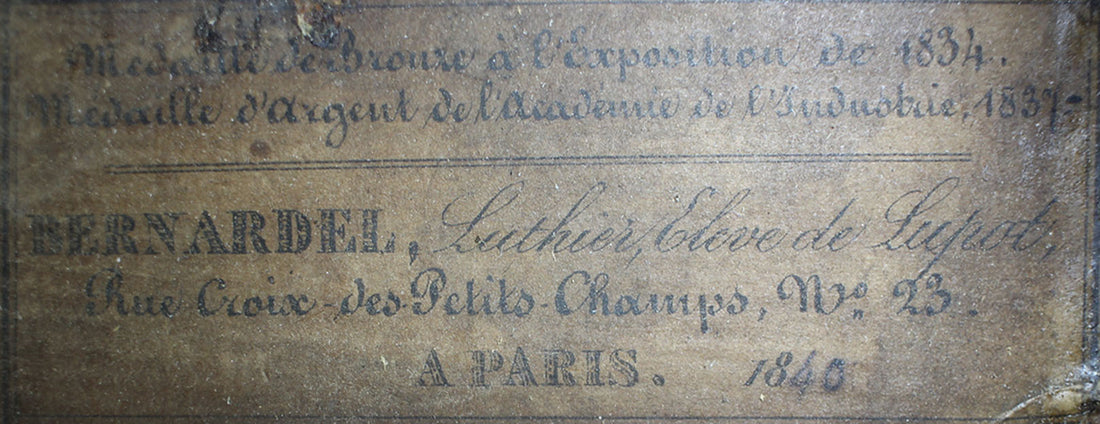 Médaille de bronze à l'Exposition de 1834.
Médaille d'Argent de l'Académie de l'Industrie, 1837-
BERNARDEL, Luthier, Eleve de Lupot,
Rue Croix-des-Petits-Champs, No. 23.
A PARIS. 1840